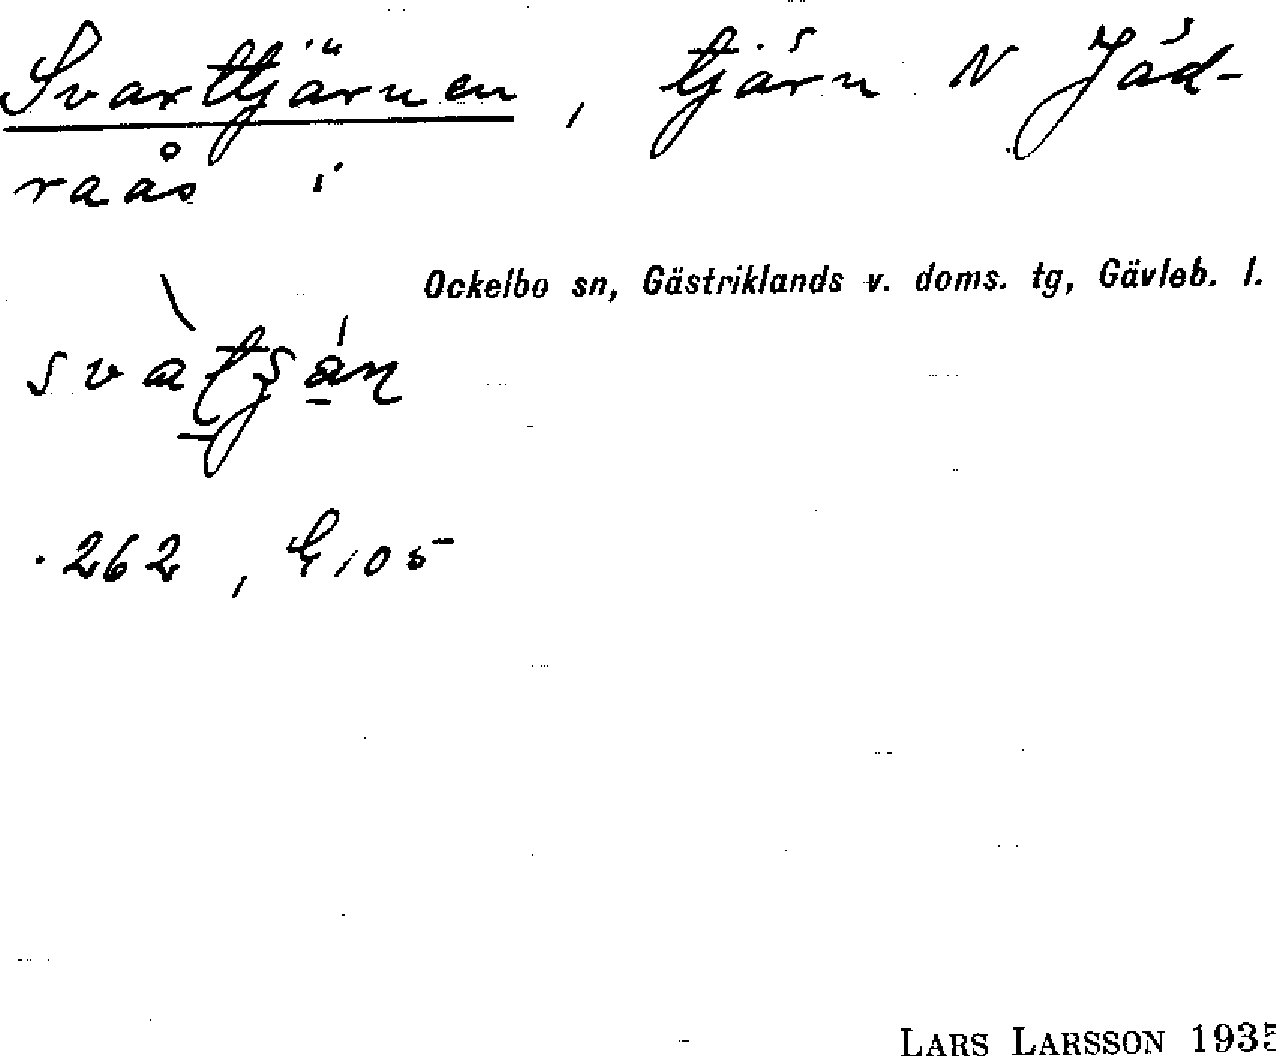 Svarttjärnen, tjärn N Jäd-
raås i
Ockelbo sn, Gästriklands v. doms. tg, Gävleb. l.
262, G105
LARS LARSSON 1935